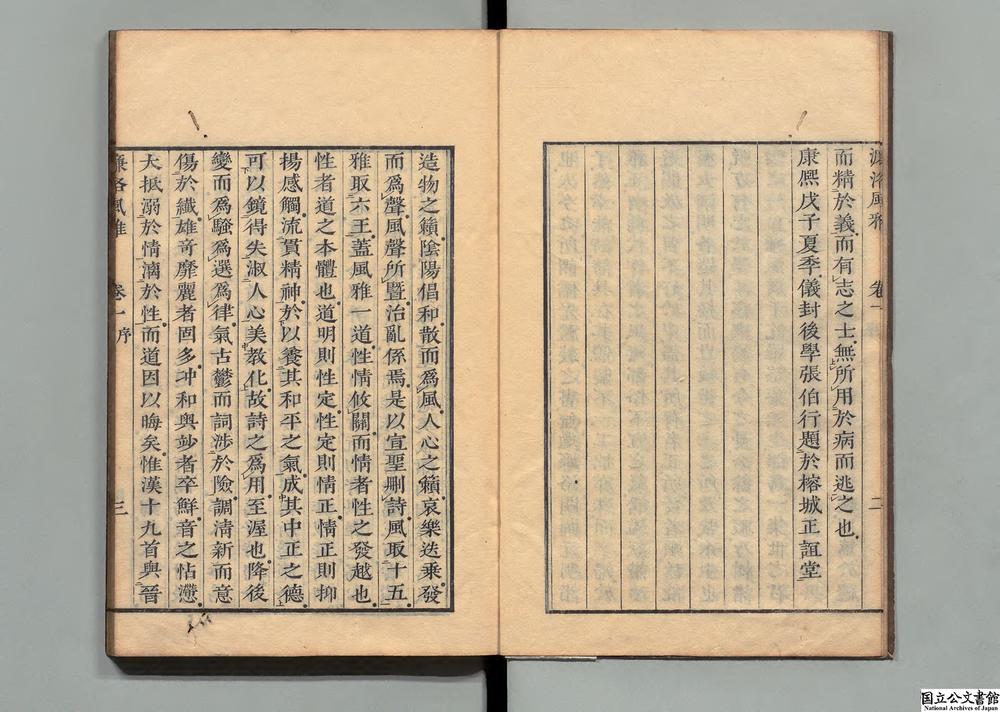 濂洛風雅 卷一 二
而精於義而有志之士無所用於病而逃之也
康熈戊子夏季儀封後學張伯行題於榕城正誼堂
造物之籟陰陽倡和散而爲風人心之籟哀樂迭乘發
而爲聲風聲所曁治亂係焉是以宣聖刪詩風取十五
雅取六王蓋風雅一道性情攸關而情者性之發越也
性者道之本體也道明則性定性定則情正情正則抑
揚感觸流貫精神於以養其和平之氣成其中正之德
可以鏡得失淑人心美教化故詩之爲用至渥也降後
變而爲騷爲選爲律氣古鬱而詞涉於險調淸新而意
傷於纖雄奇靡麗者固多冲和與玅者卒鮮音之怗懘
大抵溺於情漓於性而道因以晦矣惟漢十九首與晉
濂洛風雅 卷一序 三
国立公文書館
National Archives of Japan